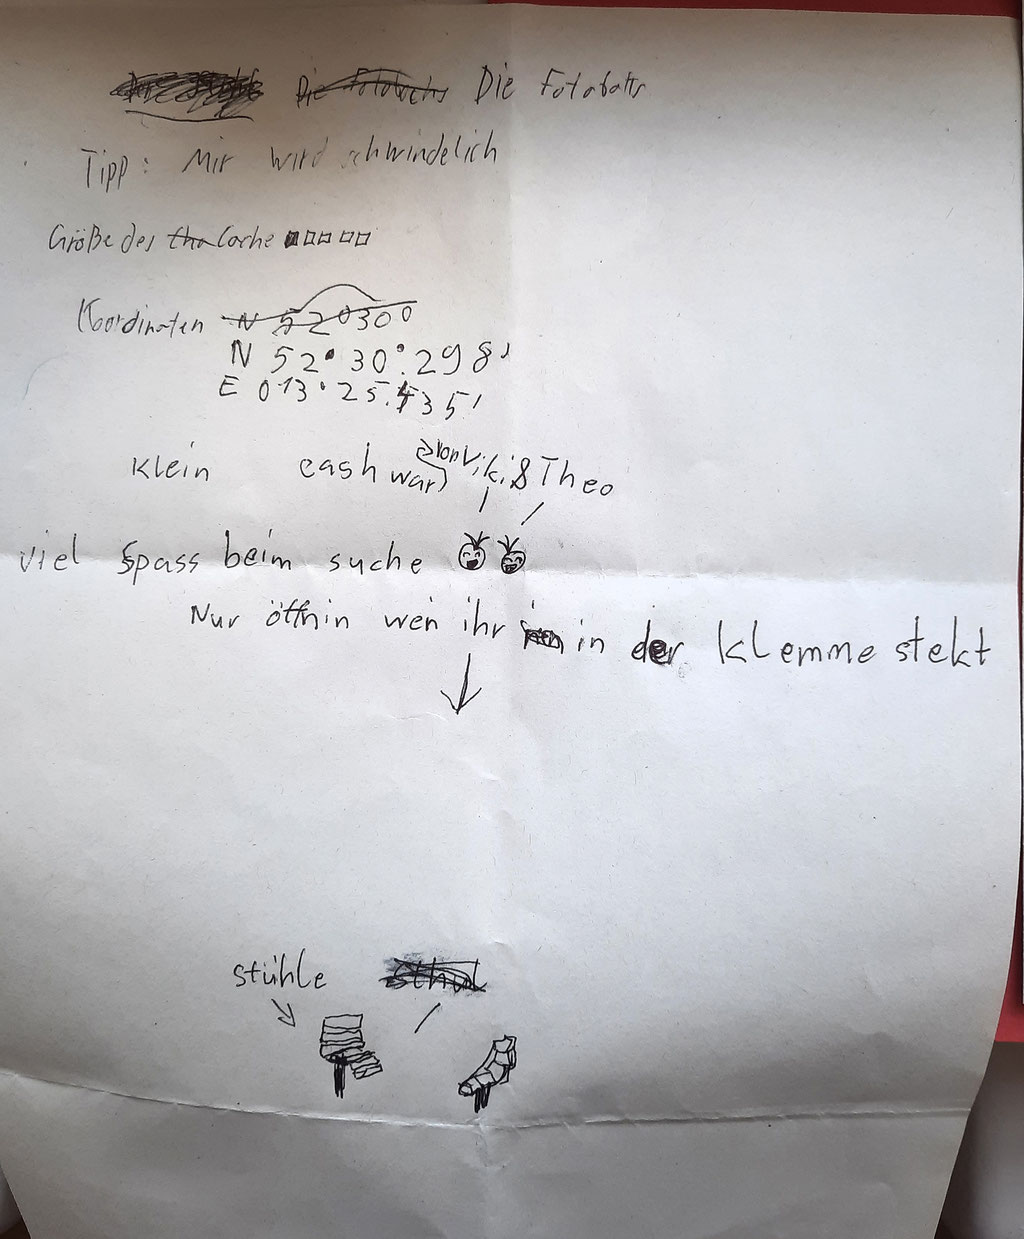 Die
Tipp: Mir wird schwindelich
Größe des Cache
Koordinaten N 52°30°
N 52°30.298'
E 013°25.435'
klein cash war von Viki & Theo
viel Spass beim suche
Nur öffnin wen ihr in der klemme stekt
stühle